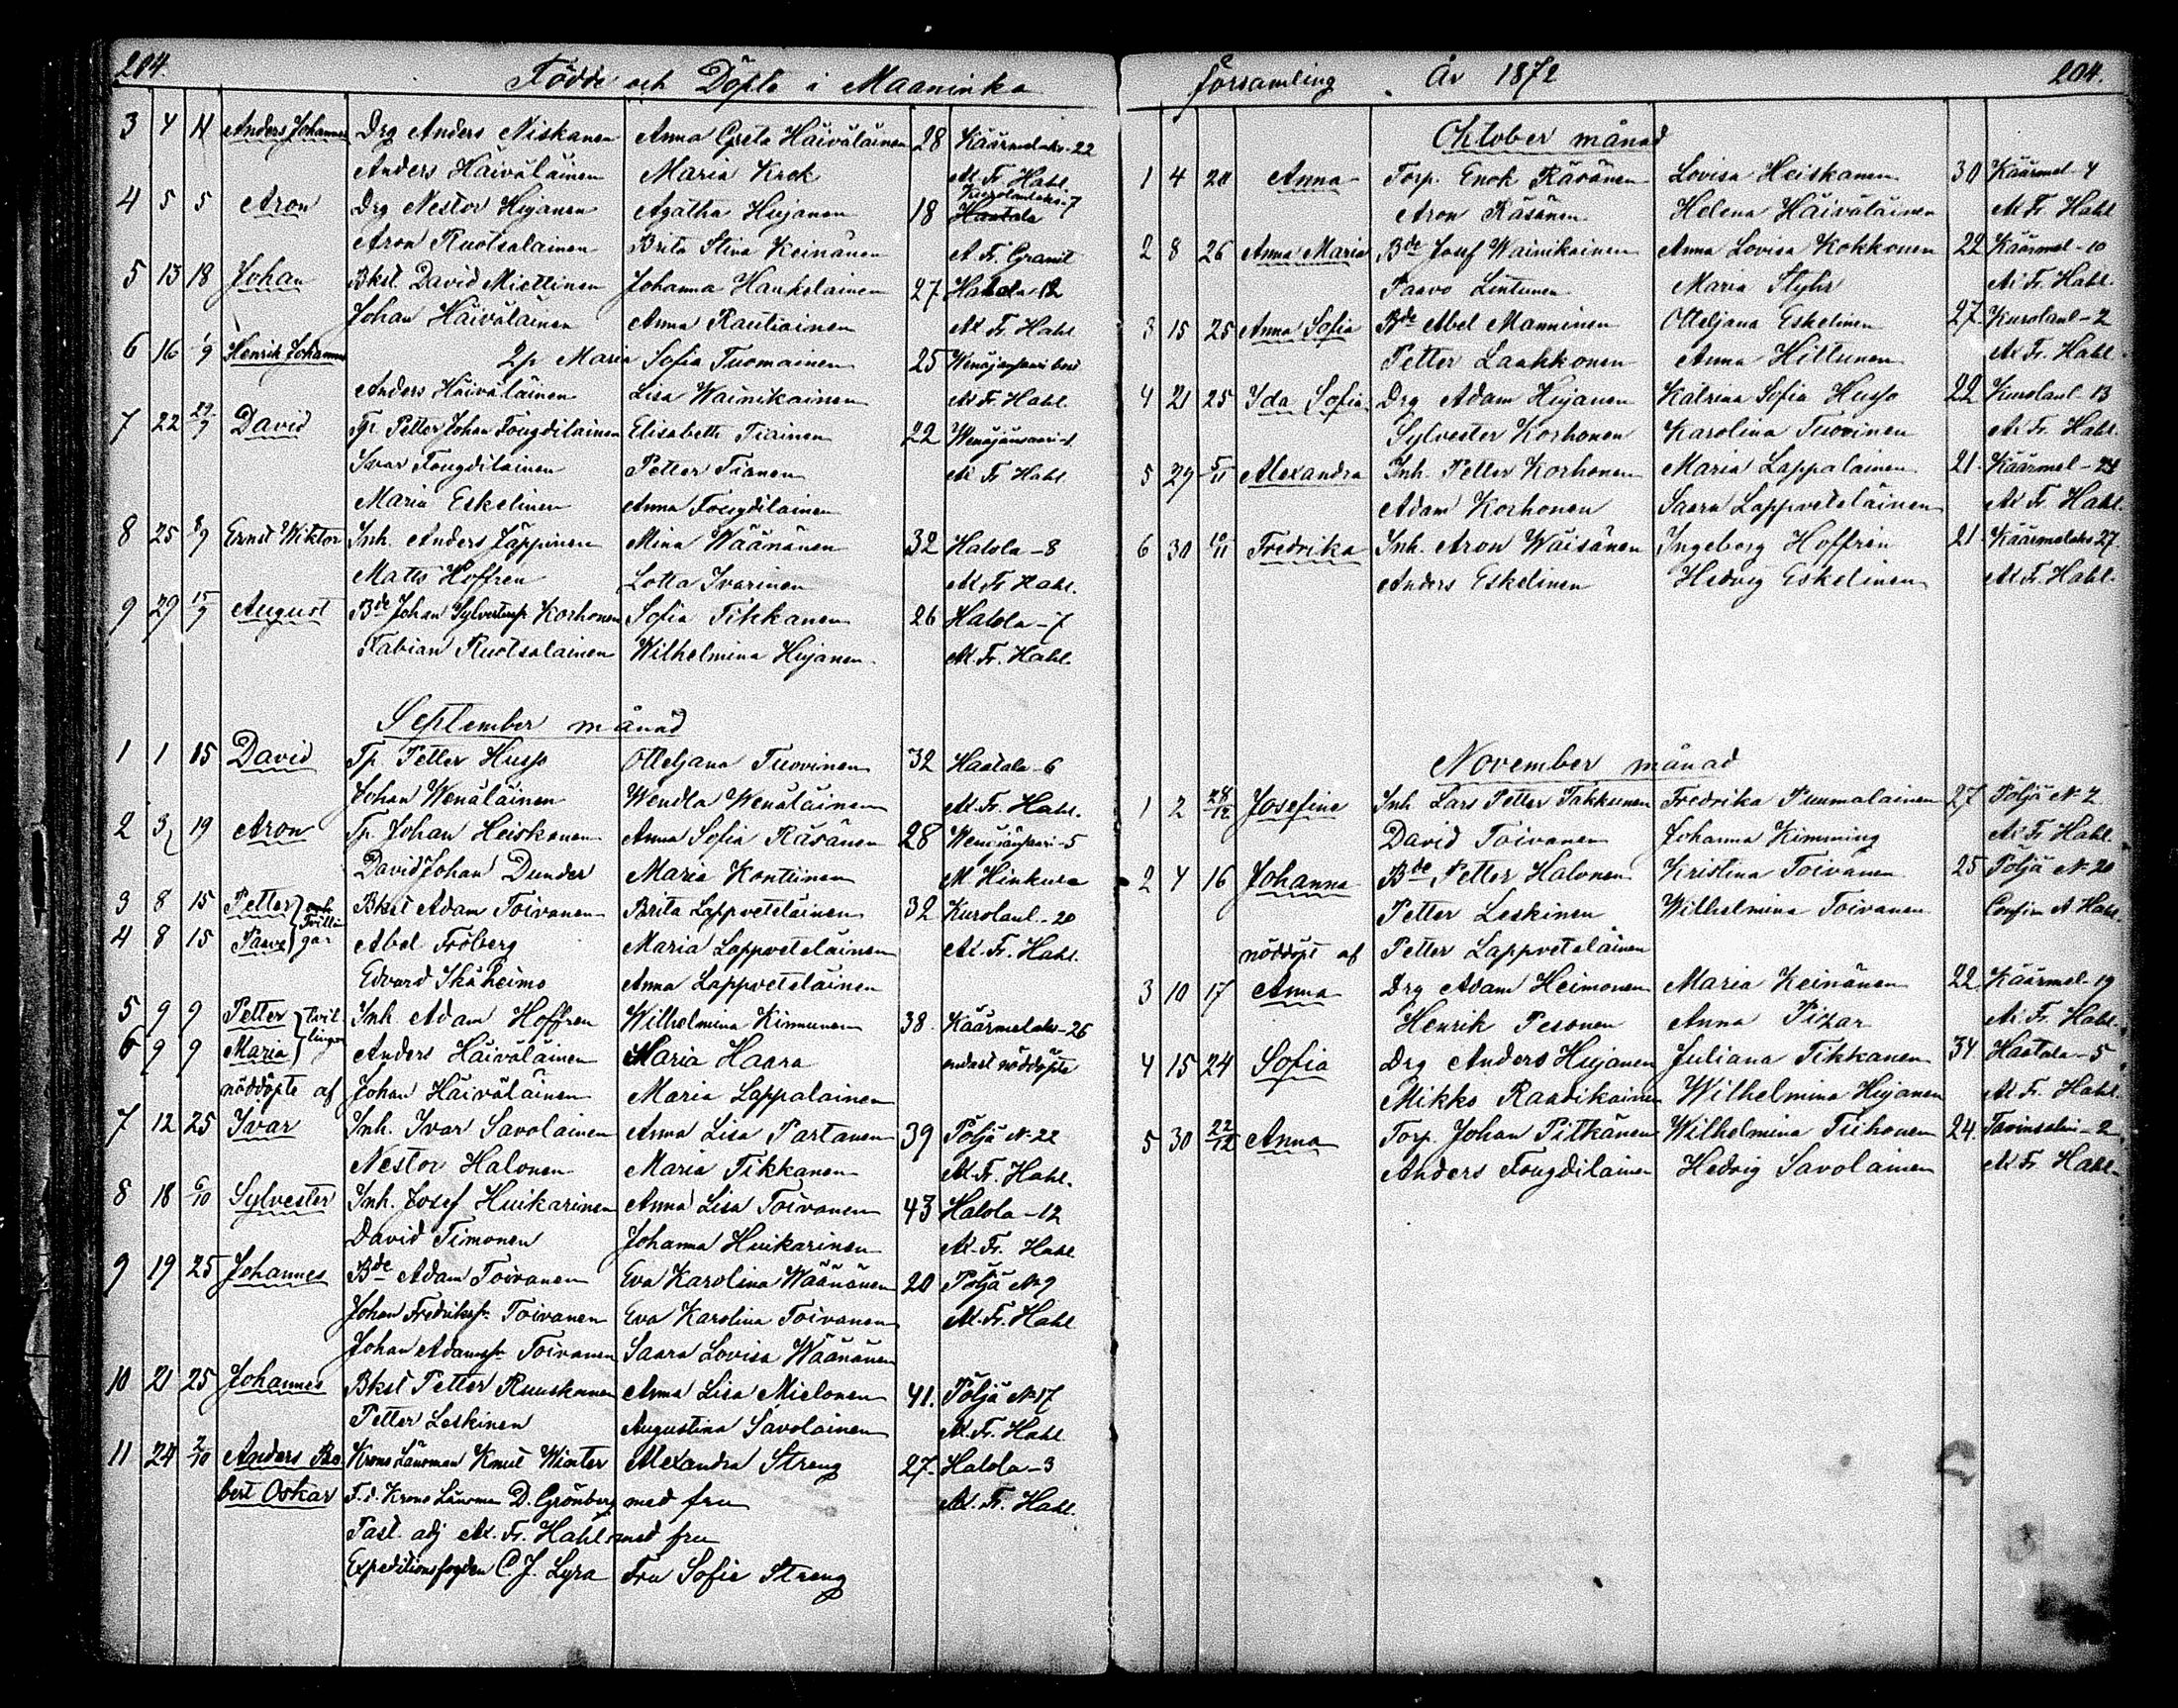 204.
Födde och Döpte i Maaninka
3 4 11 Anders Johannes Drg Anders Niskanen Anna Greta Häiväläinen 28 Käärmelaks-22
Anders Häiväläinen Maria Krok Ax Fr. Hahl.
4 5 5 Aron Drg Nestor Hujanen Agatha Hujanen 18 Haatala Kurolanlaks-7
Aron Ruotsalainen Brita Stina Keinänen A. F. Granit
5 13 18 Johan Bkst. David Miettinen Johanna Haukolainen 27 Halola-12
Johan Häiväläinen Anna Rautiainen Ax Fr Hahl
6 16 1/9 Henrik Johannes Qp Maria Sofia Tuomainen 25
Anders Häiväläinen Lisa Wäinikainen Ax Fr. Hahl.
7 22 David Tp. Petter Johan Fougdilainen Elisabeth Tiainen 22 Wenäjänsaari-1
Ivar Fougdilainen Petter Tianen Ax Fr Hahl.
Maria Eskelinen Anna Fougdilainen
8 25 8/9 Ernst Wiktor Inh. Anders Jäppinen Mina Wäänänen 32 Halola-8
Matts Hoffren Lotta Ivarinen Ax Fr Hahl.
9 29 15/9 August Bde Johan Sylvestersp Korhonen Sofia Tikkanen 26 Halola-7
Fabian Ruotsalainen Wilhelmina Hujanen Ax. Fr. Hahl.
September månad
1 1 15 David Tp. Petter Husso Otteljana Tuovinen 32 Haatala-6
Johan Wenäläinen Wendla Wenäläinen Ax. Fr. Hahl.
2 3 19 Aron Tp. Johan Heiskanen Anna Sofia Räsänen 28 Wenäjänsaari-5
David Johan Dunder Maria Kontinen M Hinkula
3 8 15 Petter och Tvillin Bkst Adam Toivanen Brita Lappveteläinen 32 Kurolanl-20
4 8 15 Paavo gar Abel Fröberg Maria Lappveteläinen Ax. Fr. Hahl.
Edvard Skåheimo Anna Lappveteläinen
5 9 9 Petter tvil- Inh. Adam Hoffren Wilhelmina Kinnunen 38. Käärmelaks-26
6 9 9 Maria lingar Anders Häiväläinen Maria Haara endast nöddöpte
nöddöpte af Johan Häiväläinen Maria Lappalainen
7 12 25 Ivar Inh. Ivar Savolainen Anna Lisa Partanen 39 Pöljä No 22
Nestor Halonen Maria Tikkanen Ax. Fr. Hahl.
8 18 6/10 Sylvester Inh. Josef Huikarinen Anna Lisa Toivanen 43 Halola-12
David Timonen Johanna Huikarinen Ax. Fr. Hahl
9 19 25 Johannes Bde Adam Toivanen Eva Karolina Wäänänen 20 Pöljä No 9
Johan Fredrikss Toivanen Eva Karolina Toivanen Ax. Fr. Hahl
Johan Adamss Toivanen Saara Lovisa Wäänänen
10 21 25 Johannes Bkst Petter Ruuskanen Anna Lisa Mielonen 41. Pöljä No 17
Petter Leskinen Augustina Savolainen Ax. Fr. Hahl
11 24 2/10 Anders Ro- Krono Länsman Knut Winter Alexandra Streng 27. Halola-3
bert Oskar F.d. Krono Länsman D. Grönberg med fru Ax. Fr. Hahl.
Past. adj Ax. Fr. Hahl med fru
Expeditionsfogden C. J. Lyra Fru Sofie Streng
församling År 1872 204.
Oktober månad
1 4 20 Anna Torp. Enok Räsänen Lovisa Heiskanen 30 Käärmel-4
Aron Räsänen Helena Häiväläinen Ax Fr. Hahl
2 8 26 Anna Maria Bde Josef Wainikainen Anna Lovisa Kokkonen 22 Käärmel-10
Paavo Lintunen Maria Styhr Ax Fr. Hahl.
3 15 25 Anna Sofia Bde Abel Manninen Otteljana Eskelinen 27 Kurolanl-2
Petter Laakkonen Anna Hiltunen Ax Fr. Hahl.
4 21 25 Ida Sofia Drg Adam Hujanen Katrina Sofia Husso 22 Kurolanl-13
Sylvester Korhonen Karolina Tuovinen Ax Fr. Hahl.
5 29 5/11 Alexandra Inh. Petter Korhonen Maria Lappalainen 21. Käärmel-24
Adam Korhonen Saara Lappveteläinen Ax Fr. Hahl.
6 30 10/11 Fredrika Inh. Aron Wäisänen Ingeborg Hoffrén 21 Käärmelaks 27.
Anders Eskelinen Hedvig Eskelinen Ax Fr. Hahl.
November månad
1 2 28/12 Josefina Inh. Lars Petter Takkunen Fredrika Puumalainen 27 Pöljä No 2
David Toivanen Johanna Kimming Ax Fr Hahl.
2 4 16 Johanna Bde Petter Halonen Kristina Toivanen 25 Pöljä No 20
Petter Leskinen Wilhelmina Toivanen Confirm A. Hahl.
nöddöpt af Petter Lappveteläinen
3 10 17 Anna Drg Adam Heimonen Maria Keinänen 22 Käärmel-19
Henrik Pesonen Anna Pixar Ax. Fr. Hahl.
4 15 24 Sofia Drg Anders Hujanen Juliana Tikkanen 34. Haatala-5
Mikko Raadikainen Wilhelmina Hujanen Ax. Fr. Hahl.
5 30 22/12 Anna Torp. Johan Pitkänen Wilhelmina Tiihonen 24. Tavinsalmi-2
Anders Fougdilainen Hedvig Savolainen Ax Fr. Hahl.